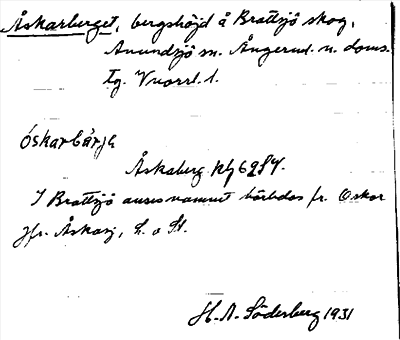 Åskarberget, bergshöjd å Brattsjö skog,
Anundsjö sn. Ångerml. n. doms.
tg. Vnorrl. l.
óskarbärjə
Åskaberg Rby 62 SV.
I Brattsjö anses namnet härledas fr. Oskar
Jfr. Åskasj, L. o St.
H. A. Söderberg 1931